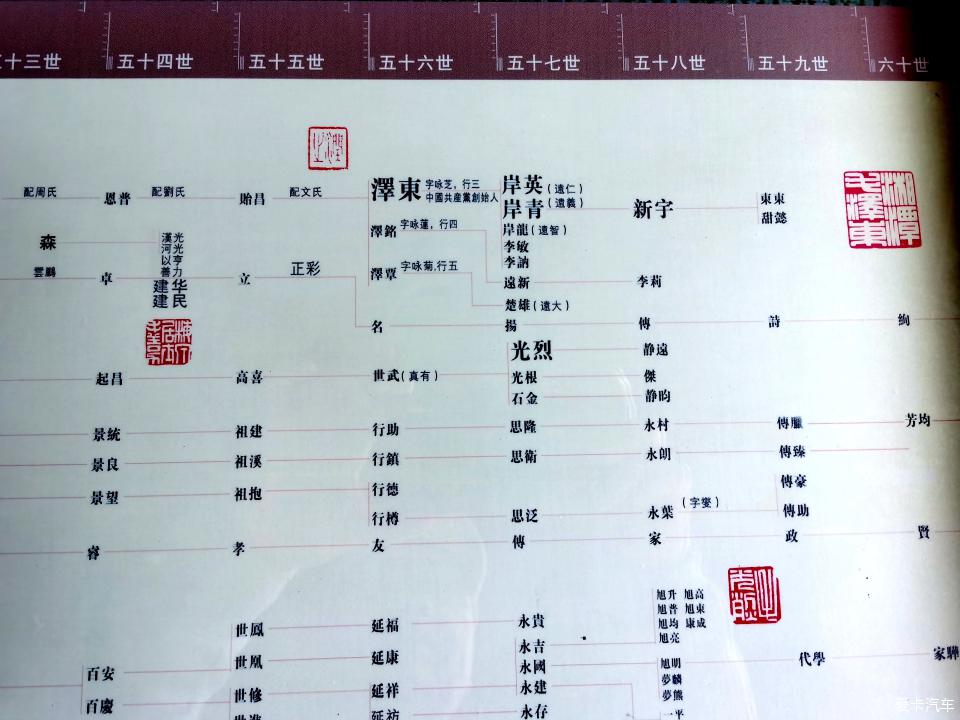 十三世 五十四世 五十五世 五十六世 五十七世 五十八世 五十九世 六十世
配周氏 恩普 配劉氏 貽昌 配文氏 澤東 字咏芝，行三 岸英（遠仁）
中國共産黨創始人 岸青（遠義） 新宇 東東
甜懿
澤銘 字咏蓮，行四 岸龍（遠智）
森 漢河以善 光光亨力 李敏
李訥
雲鵬 卓 建建 华民 立 正彩 澤覃 字咏菊,行五 遠新 李莉
楚雄（遠大）
名 揚 傳 詩 絢
光烈 静遠
起昌 高喜 世武（真有） 光根 傑
石金 静昀
景統 祖建 行助 思隆 永村 傳臘 芳均
景良 祖溪 行鎮 思衛 永朗 傳臻
景望 祖抱 行德 傳豪
行樽 思泛 永葉（字燮） 傳助
睿 孝 友 傳 家 政 賢
旭升 旭高
旭普 旭東
世鳳 延福 永貴 旭均 康成
旭亮
永吉
百安 世凰 延康 永國 旭明 代學 家驊
夢麟
世修 延祥 永建 夢熊
百慶 永存 一平
湘潭毛澤東
爱卡汽车